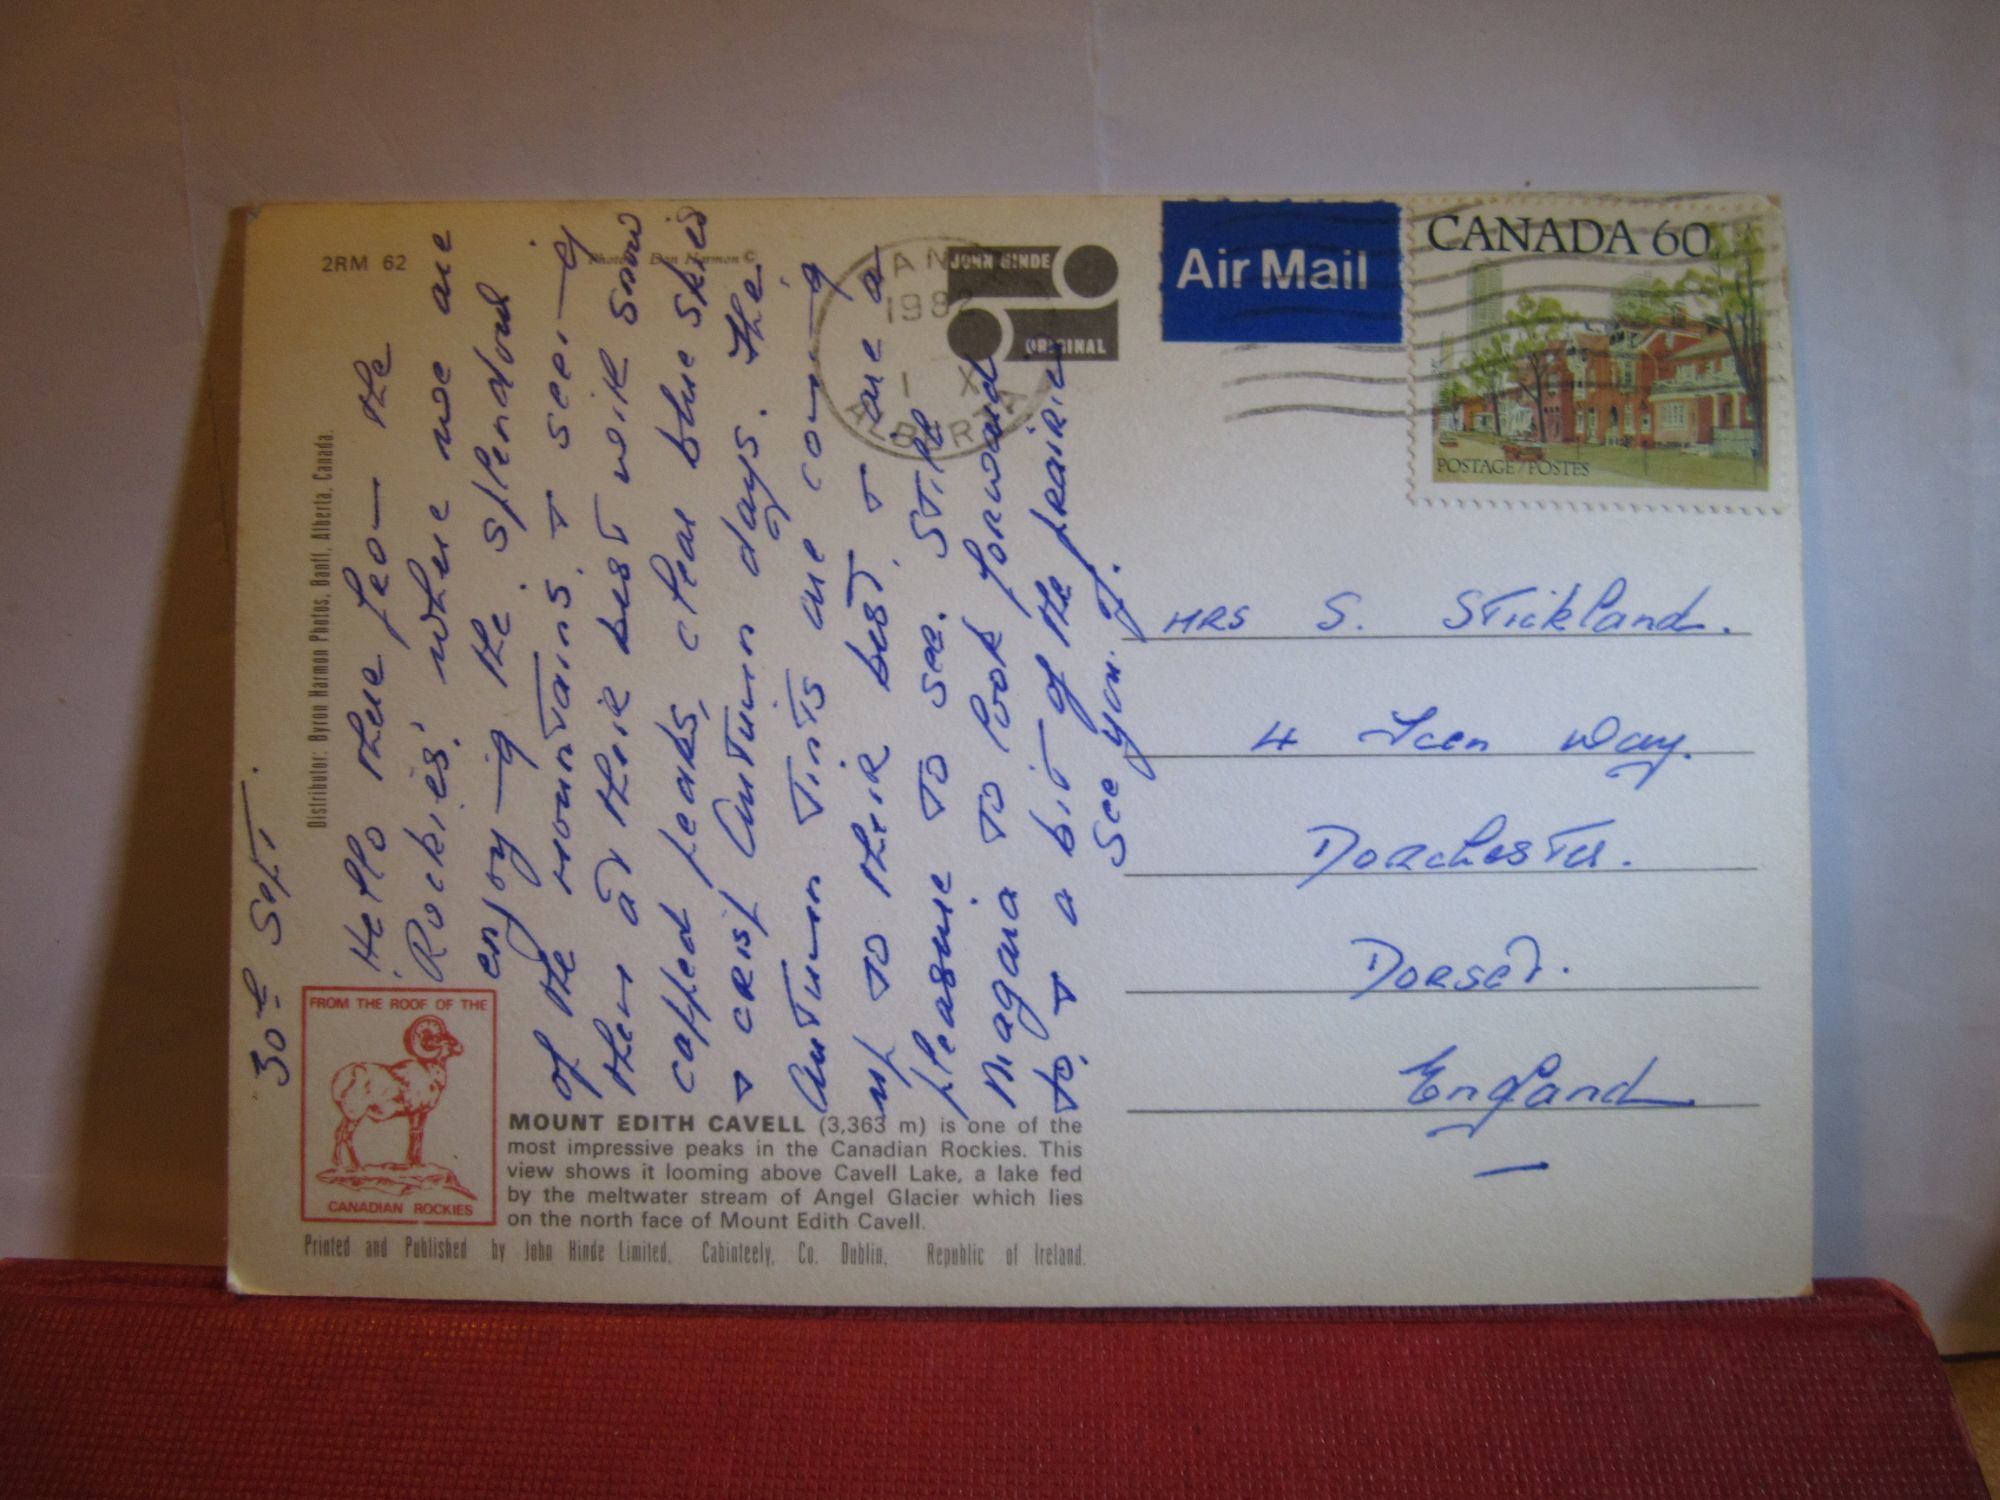 2RM 62
Photo: Don Harmon ©
JOHN HINDE
ORIGINAL
Air Mail
CANADA 60
POSTAGE/POSTES
1982
1 X
ALBERTA
Distributor: Byron Harmon Photos, Banff, Alberta, Canada.
30th Sept.
Hello there from the
Rockies! where we are
enjoying the splendour
of the mountains & seeing
them at their best with snow
capped peaks, clear blue skies
& crisp Autumn days. The
Autumn tints are coming
up to their best & are a
pleasure to see. Still
Niagara to look forward
to & a bit of the prairies
See you.
MRS S. Strickland.
4 Icen Way.
Dorchester.
Dorset.
England
FROM THE ROOF OF THE
CANADIAN ROCKIES
MOUNT EDITH CAVELL (3,363 m) is one of the
most impressive peaks in the Canadian Rockies. This
view shows it looming above Cavell Lake, a lake fed
by the meltwater stream of Angel Glacier which lies
on the north face of Mount Edith Cavell.
Printed and Published by John Hinde Limited, Cabinteely, Co. Dublin, Republic of Ireland.